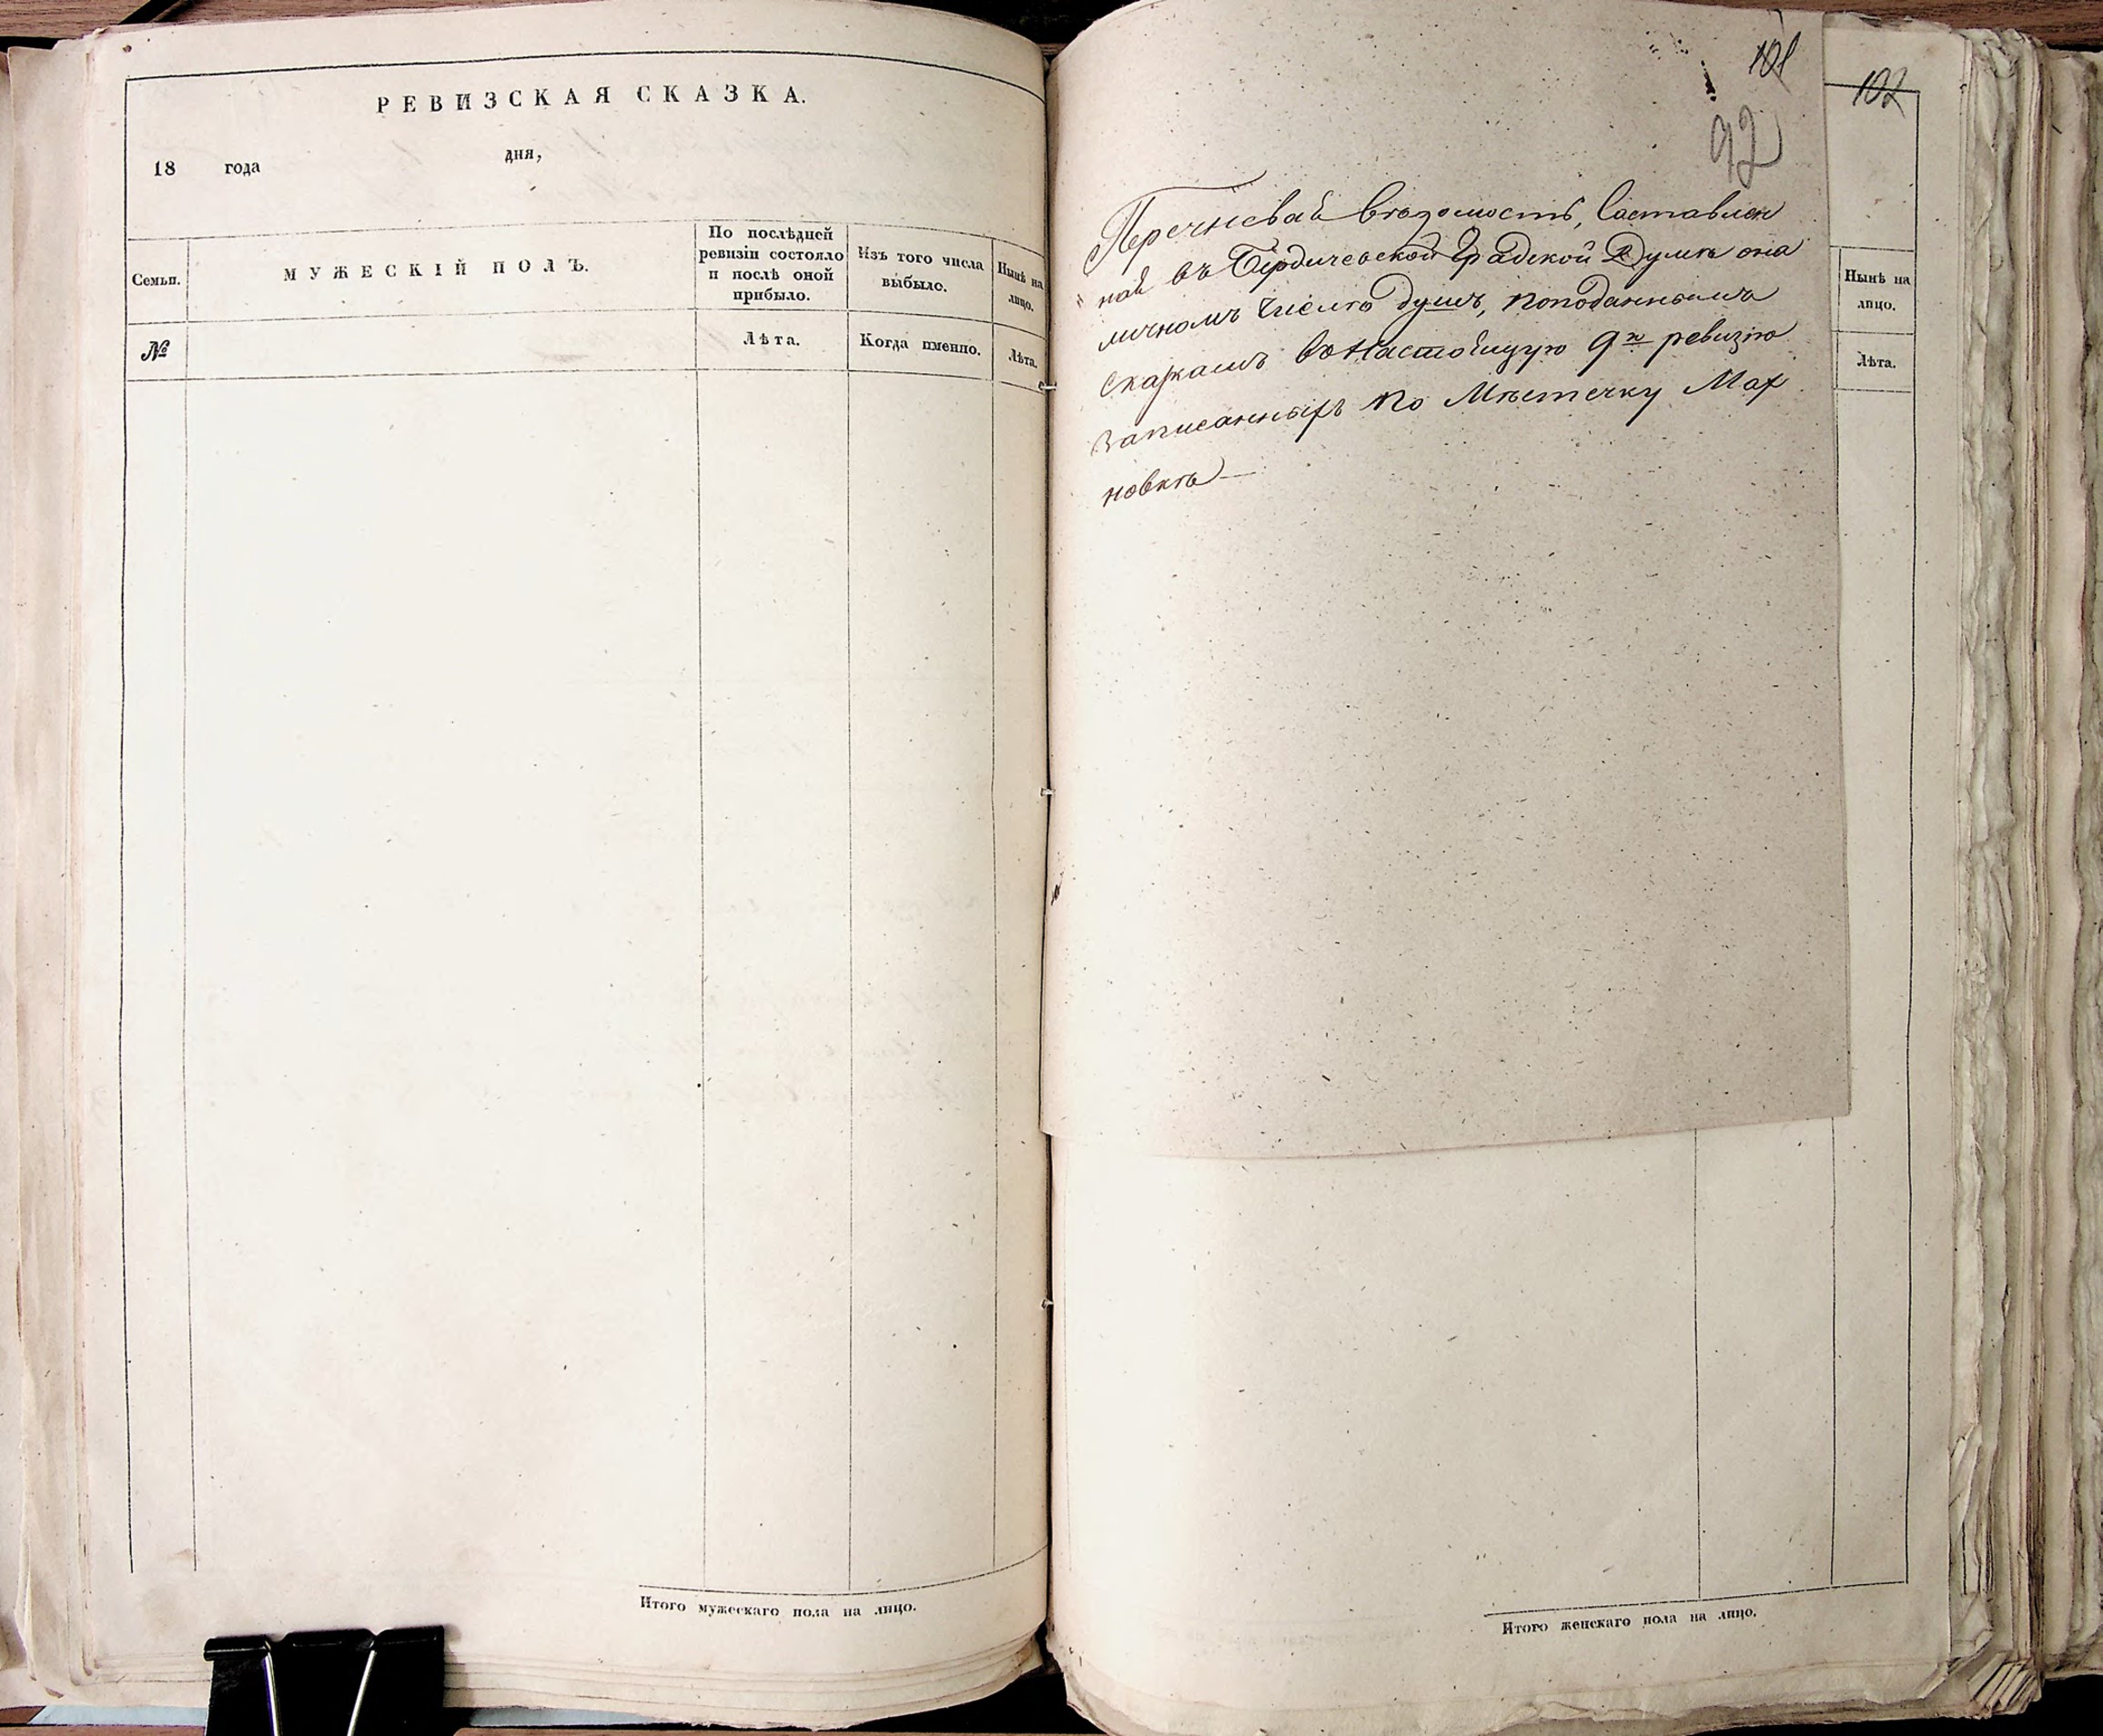 РЕВИЗСКАЯ СКАЗКА.
18 года дня,
Семьи.
МУЖЕСКІЙ ПОЛЪ.
По послѣдней
ревизіи состояло
и послѣ оной
прибыло.
Изъ того числа
выбыло.
Нынѣ на
лицо.
№
Лѣта.
Когда именно.
Лѣта.
Итого мужескаго пола на лицо.
101
92
Перечневая вѣдомость, Составлен
ная въ Бердичевской Градской Думѣ она
личномъ Числѣ душъ, поподаннымъ
Сказкамъ въ Настоящую 9ю ревизію
Записанныхъ по Мѣстечку Мах
новкѣ
102
Нынѣ на
лицо.
Лѣта.
Итого женскаго пола на лицо.